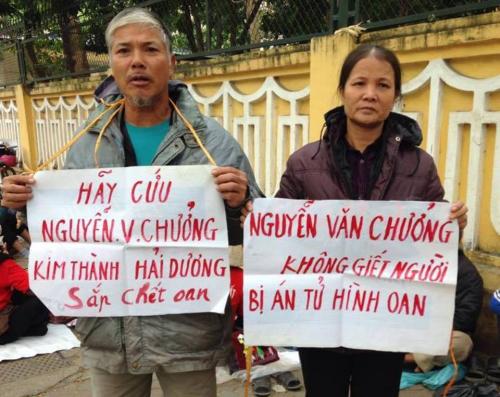 HÃY CỨU
NGUYỄN.V.CHƯỞNG
KIM THÀNH HẢI DƯƠNG
Sắp chết oan
NGUYỄN VĂN CHƯỞNG
KHÔNG GIẾT NGƯỜI
BỊ ÁN TỬ HÌNH OAN